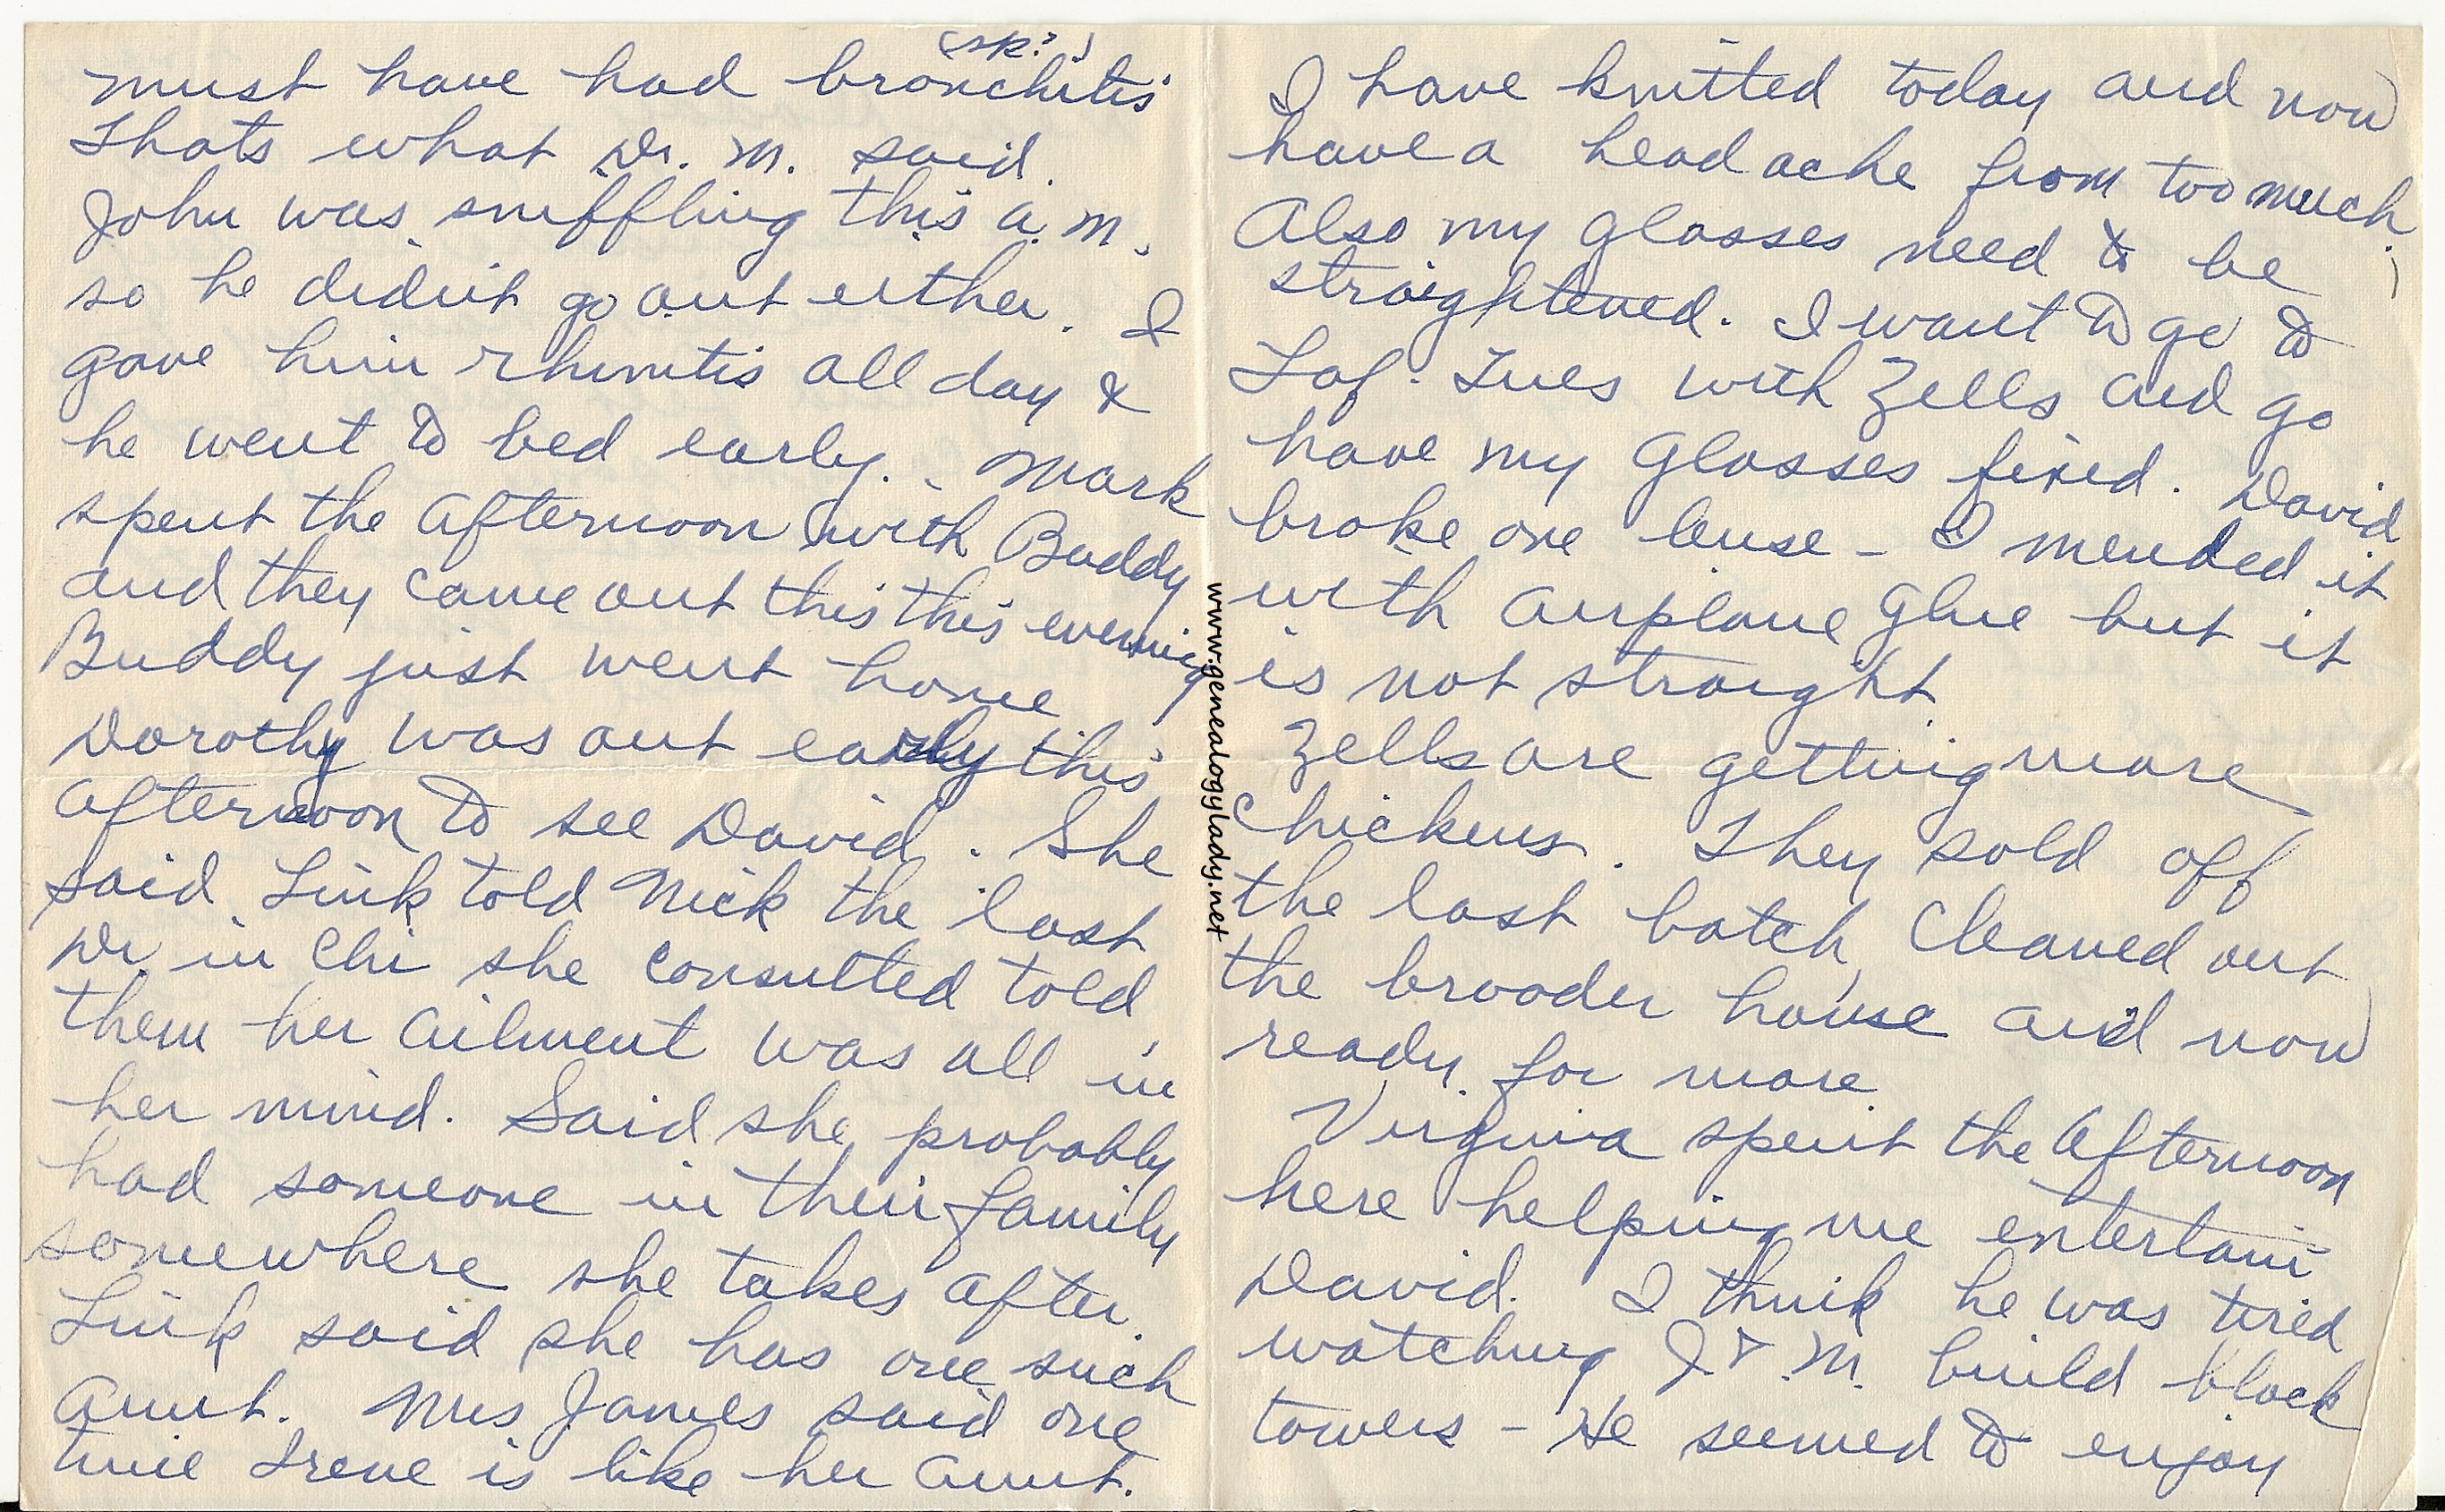 (sp?)
must have had bronchitis
Thats what Dr. M. said.
John was sniffling this a.m.
so he didn't go out either. I
gave him rhinitis all day &
he went to bed early. Mark
spent the afternoon with Buddy
and they came out this this evening
Buddy just went home
Dorothy was out early this
afternoon to see David. She
said Link told Nick the last
Dr. in Chi she consulted told
them her ailment was all in
her mind. Said she probably
had someone in their family
somewhere she takes after.
Link said she has one such
aunt. Mrs James said one
time Irene is like her aunt.
I have knitted today and now
have a headache from too much.
Also my glasses need to be
straightened. I want to go to
Laf. Tues with Zells and go
have my glasses fixed. David
broke one lense - I mended it
with airplane glue but it
is not straight.
Zells are getting more
chickens. They sold off
the last batch, cleaned out
the brooder house and now
ready for more
Virginia spent the afternoon
here helping me entertain
David. I think he was tired
watching J. & M. build block
towers - He seemed to enjoy
www.genealogylady.net